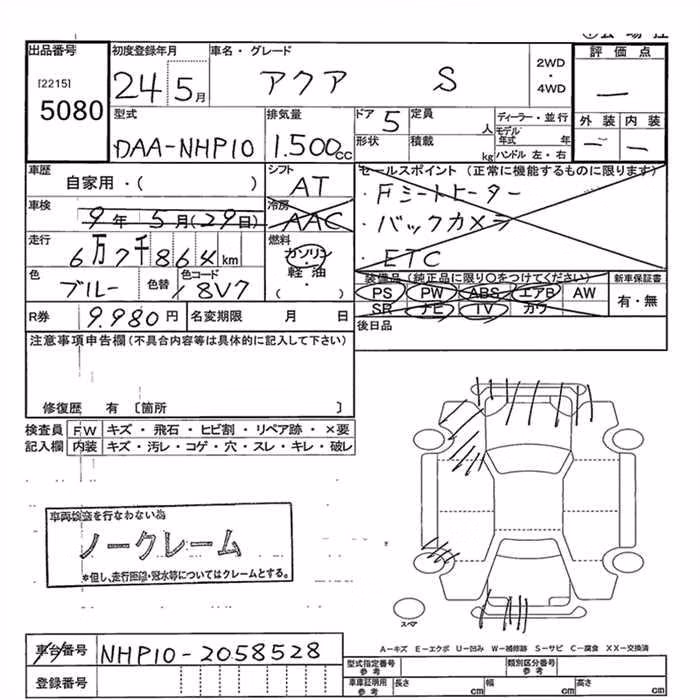 出品番号
[2215]
5080
初度登録年月
24 5月
車名・グレード
アクア S
2WD
・
4WD
評価点
—
外装 内装
— —
型式
DAA-NHP10
排気量
1.500cc
ドア 5
形状
定員 人
積載 kg
ディーラー・並行
モデル年式 年
ハンドル 左・右
車歴
自家用・( )
車検
9年 5月(29日)
走行
6万7千864km
色
ブルー
色替
色コード
18V7
シフト
AT
冷房
AAC
燃料
ガソリン
・
軽油
・
( )
セールスポイント (正常に機能するものに限ります)
・Fシートヒーター
・バックカメラ
・ETC
装備品(純正品に限り○をつけてください)
PS PW ABS エアB AW
SR ナビ TV カワ
新車保証書
有・無
後日品
R券 9.980円
名変期限 月 日
注意事項申告欄(不具合内容等は具体的に記入して下さい)
修復歴 有 〔箇所 〕
検査員 FW キズ・飛石・ヒビ割・リペア跡・×要
記入欄 内装 キズ・汚レ・コゲ・穴・スレ・キレ・破レ
車両検査を行なわない為
ノークレーム
*但し、走行距離・冠水等についてはクレームとする。
スペア
A－キズ E－エクボ U－凹み W－補修跡 S－サビ C－腐食 XX－交換済
車台番号 NHP10-2058528
登録番号
型式指定番号
参考
類別区分番号
参考
車庫証明用
参考
長さ cm 幅 cm 高さ cm